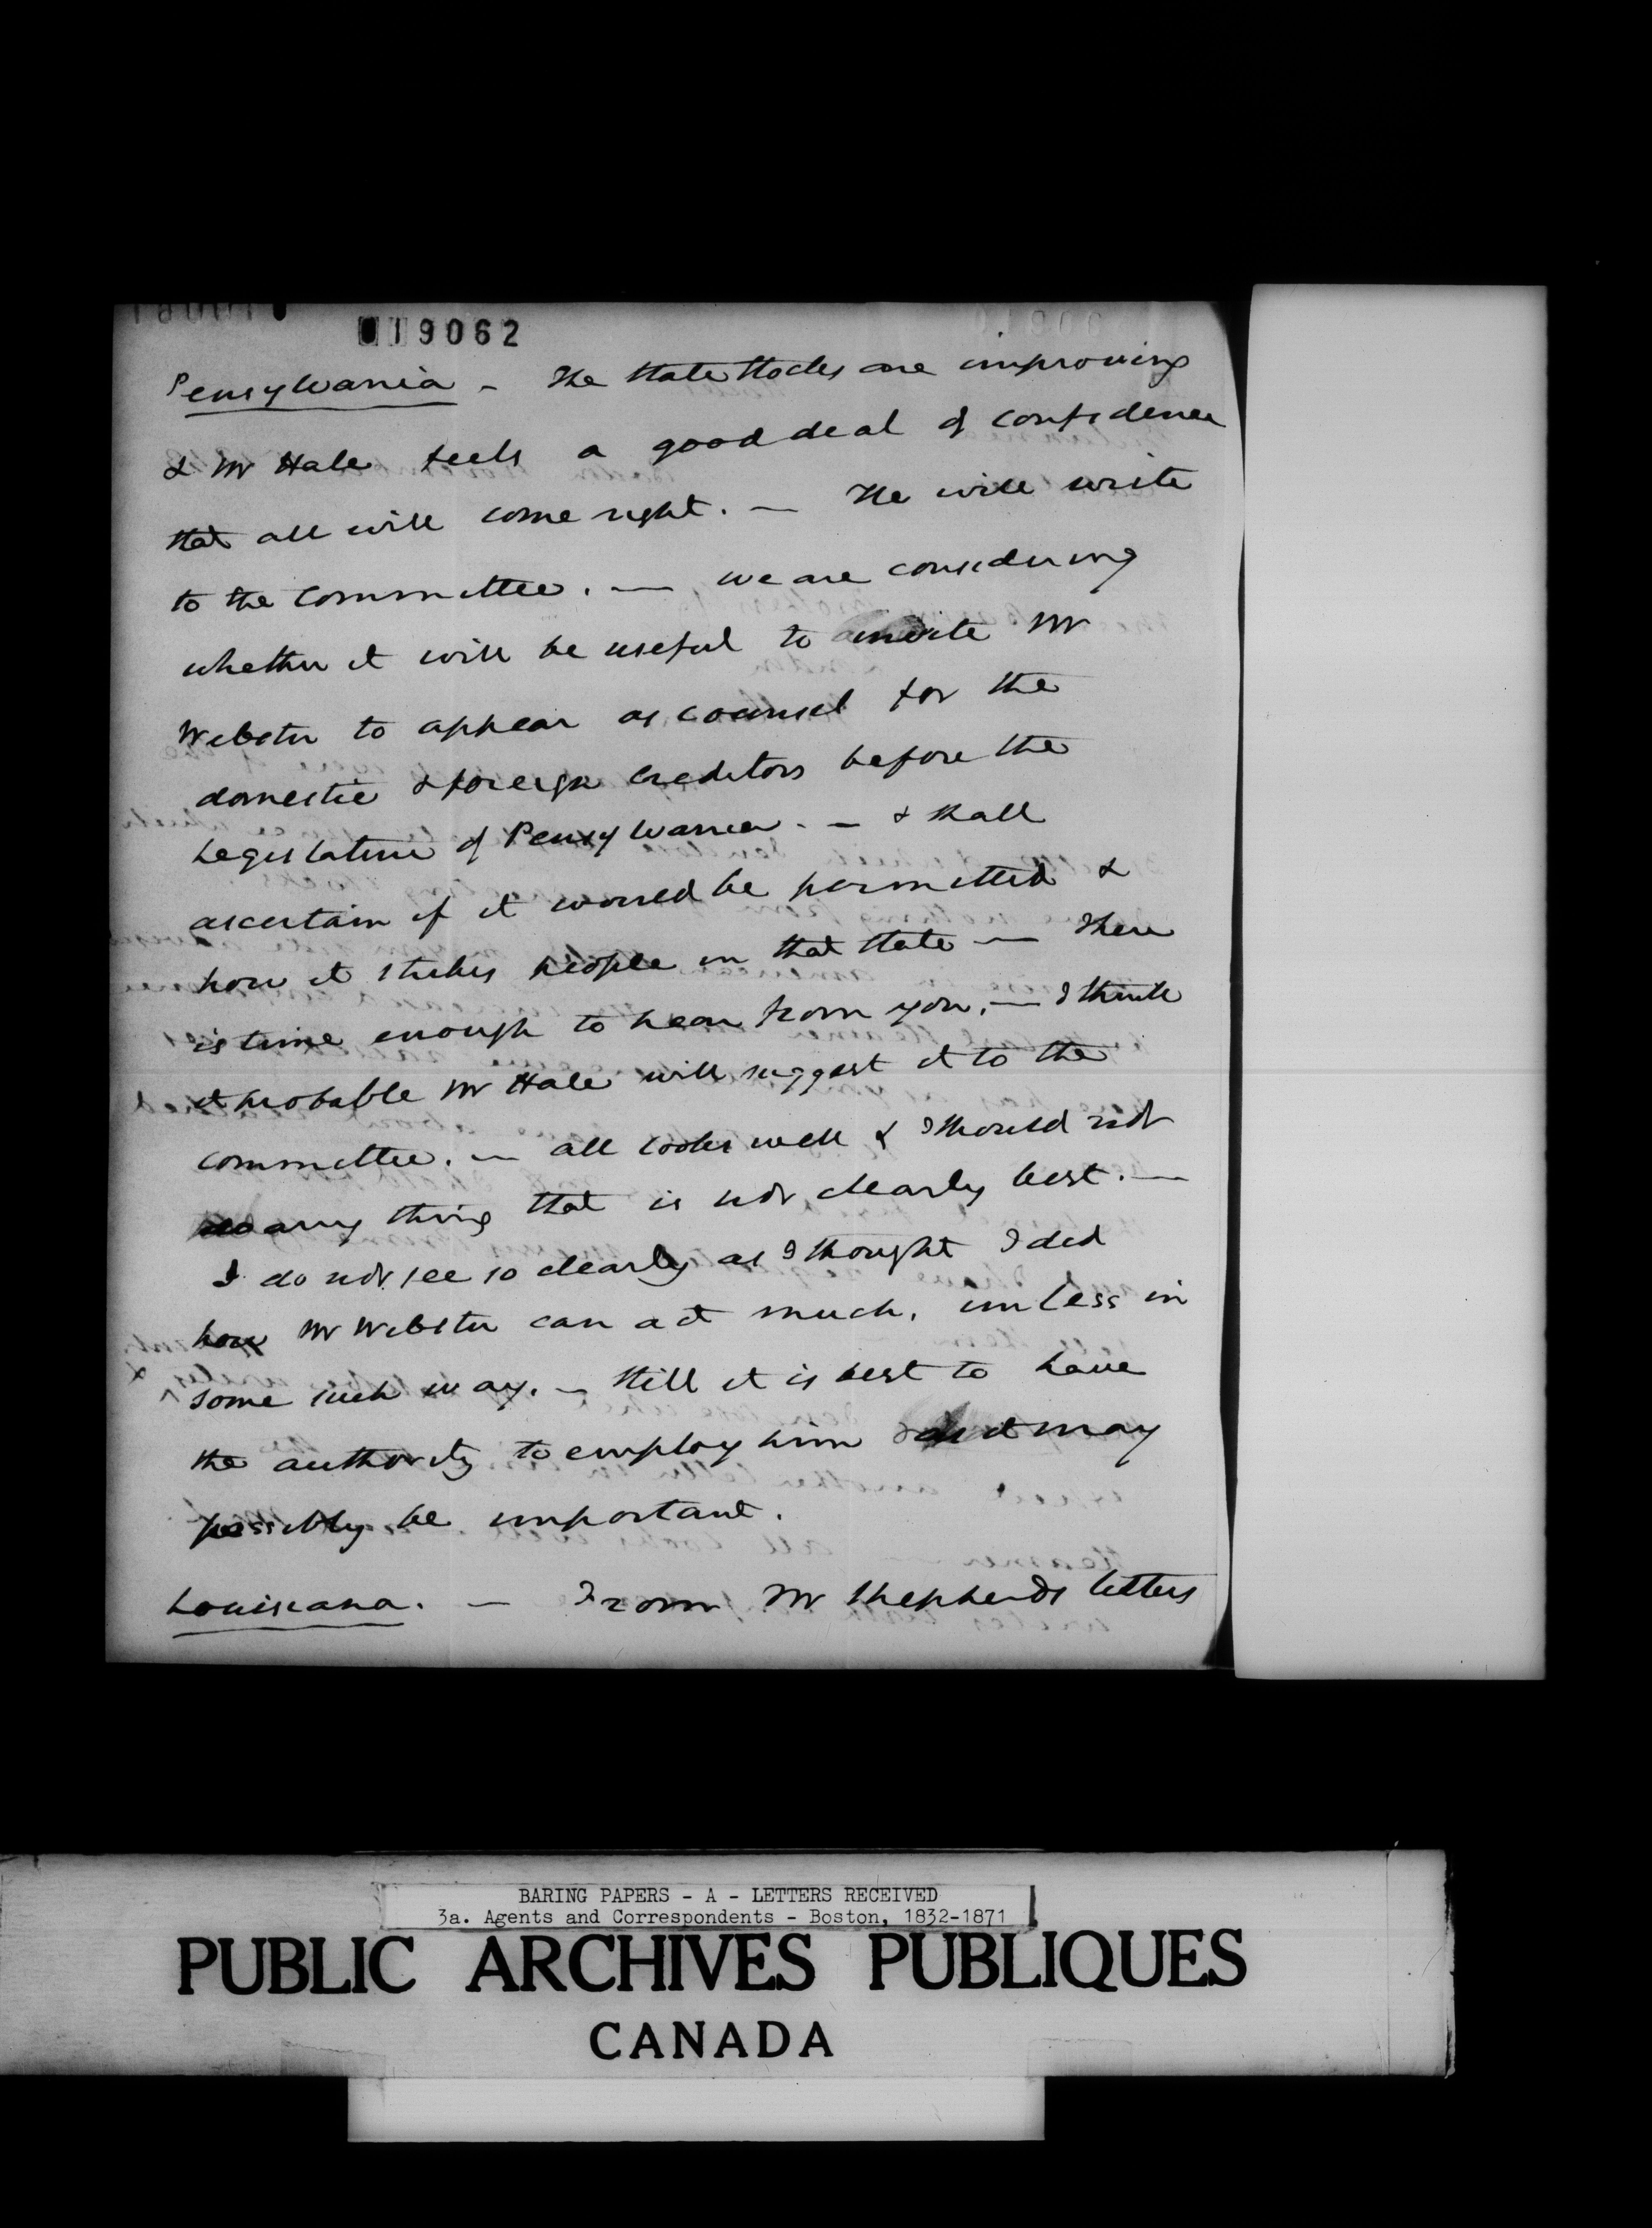 19062
Pensylvania - The State Stocks are improving
& Mr Hale feels a good deal of confidence
that all will come right. — He will write
to the Committee. — we are considering
whether it will be useful to invite Mr
Webster to appear as counsel for the
domestic & foreign Creditors before the
Legislature of Pensylvania. — & shall
ascertain if it would be permitted &
how it strikes people in that State — There
is time enough to hear from you. — I think
it probable Mr Hale will suggest it to the
Committee. — all looks well & I should not
do any thing that is not clearly best. —
I do not see so clearly as I thought I did
how Mr Webster can act much, unless in
some such way. — Still it is best to have
the authority to employ him as it may
possibly be important.
Louisiana. — From Mr Shepherds letters
BARING PAPERS - A - LETTERS RECEIVED
3a. Agents and Correspondents - Boston, 1832-1871
PUBLIC ARCHIVES PUBLIQUES
CANADA